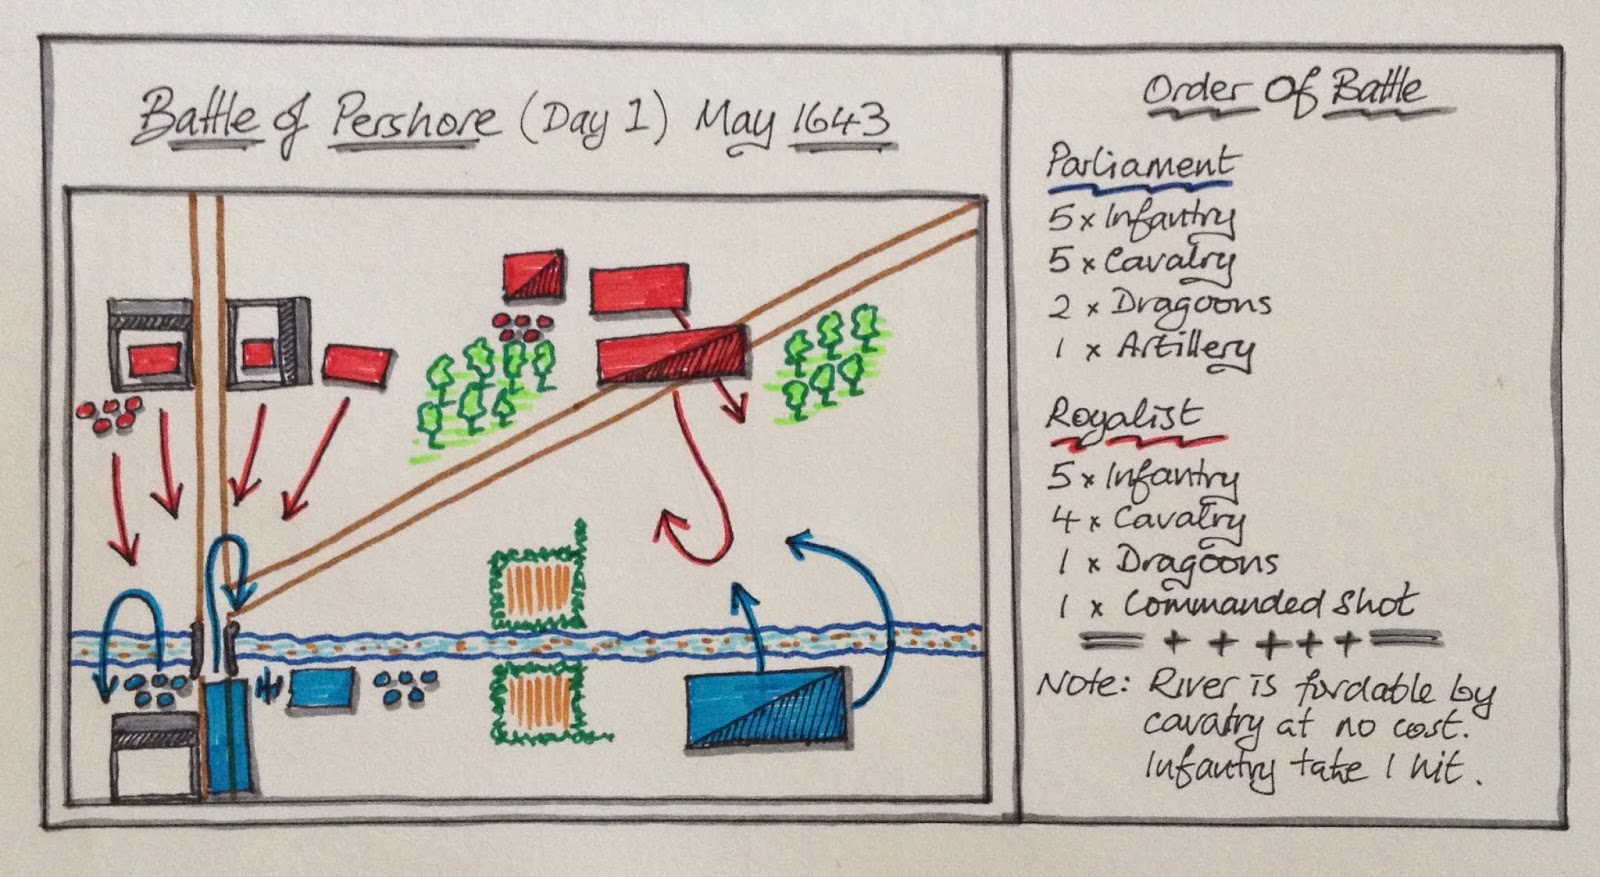 Battle of Pershore (Day 1) May 1643
Order Of Battle
Parliament
5 x Infantry
5 x Cavalry
2 x Dragoons
1 x Artillery
Royalist
5 x Infantry
4 x Cavalry
1 x Dragoons
1 x Commanded Shot
Note: River is fordable by
cavalry at no cost.
Infantry take 1 hit.